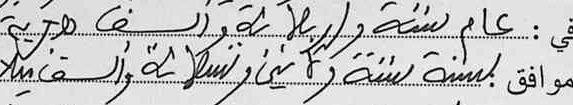 في : عام ستة وأربعمائة وألف هجرية
موافق لسنة ستة وثمانين وتسعمائة وألف ميلا